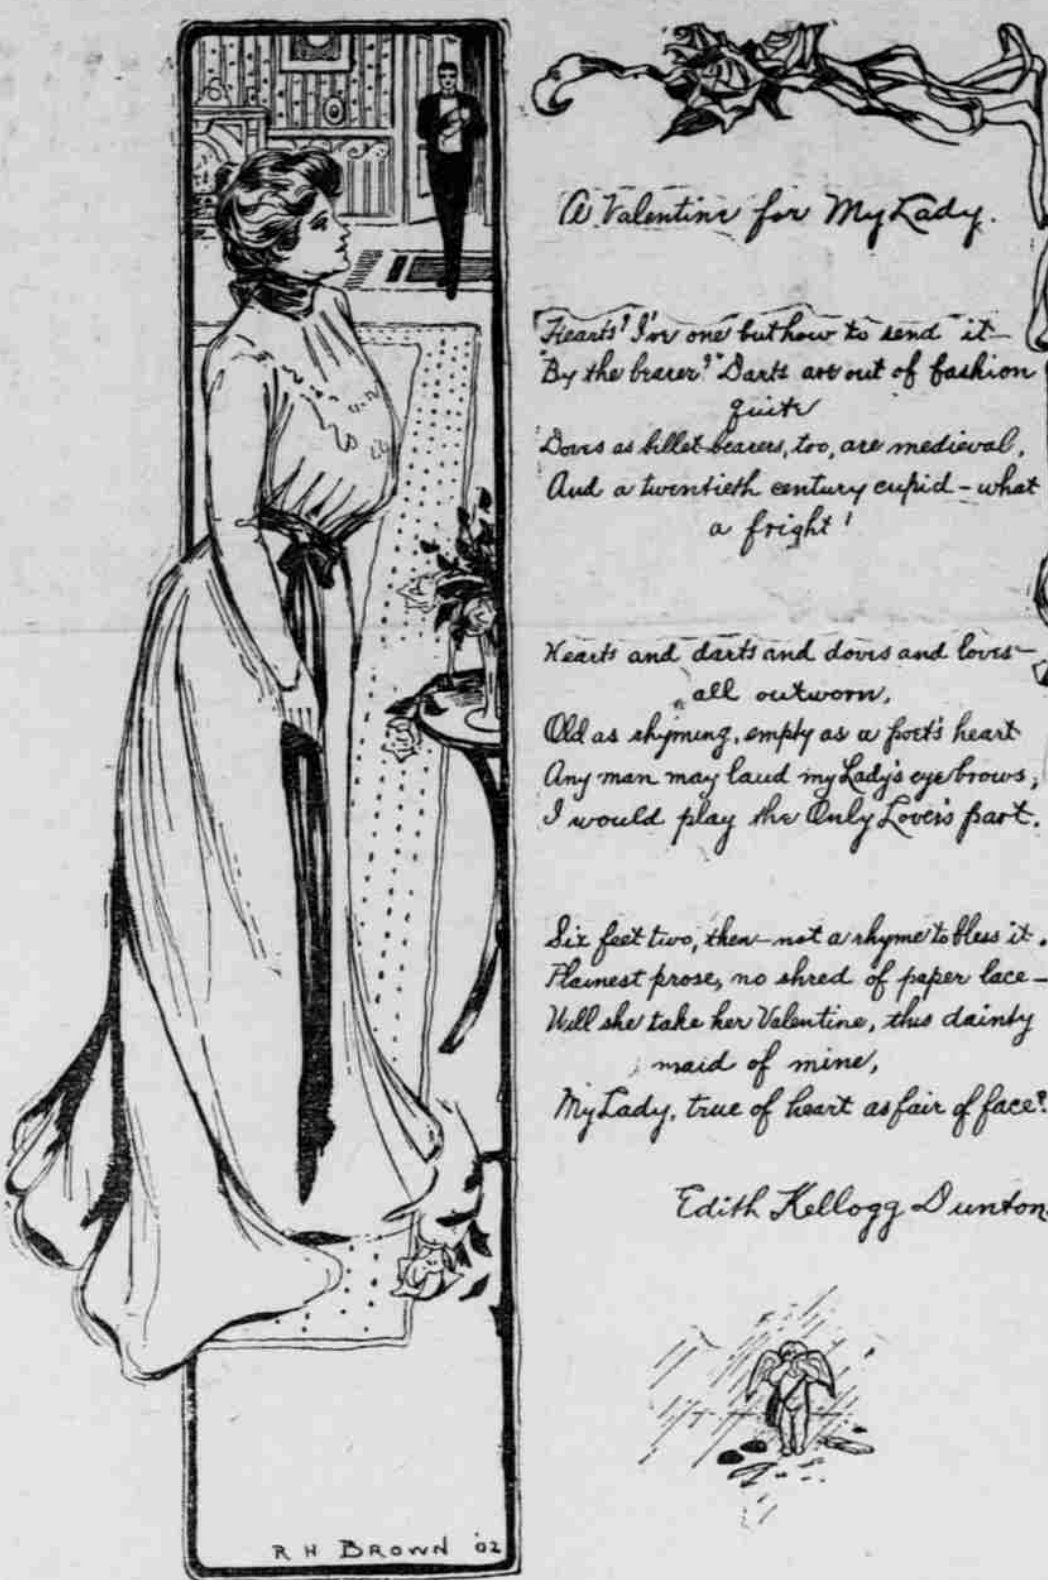 A Valentine for My Lady.
Hearts? I've one but how to send it—
"By the bearer?" Darts are out of fashion
quite
Doves as billet-bearers, too, are medieval,
And a twentieth century cupid – what
a fright!
Hearts and darts and doves and loves—
all outworn,
Old as rhyming, empty as a poet's heart
Any man may laud my Lady's eyebrows,
I would play the Only Lover's part.
Six feet two, then – not a rhyme to bless it.
Plainest prose, no shred of paper lace –
Will she take her Valentine, this dainty
maid of mine,
My Lady, true of heart as fair of face?
Edith Kellogg Dunton.
R H BROWN '02